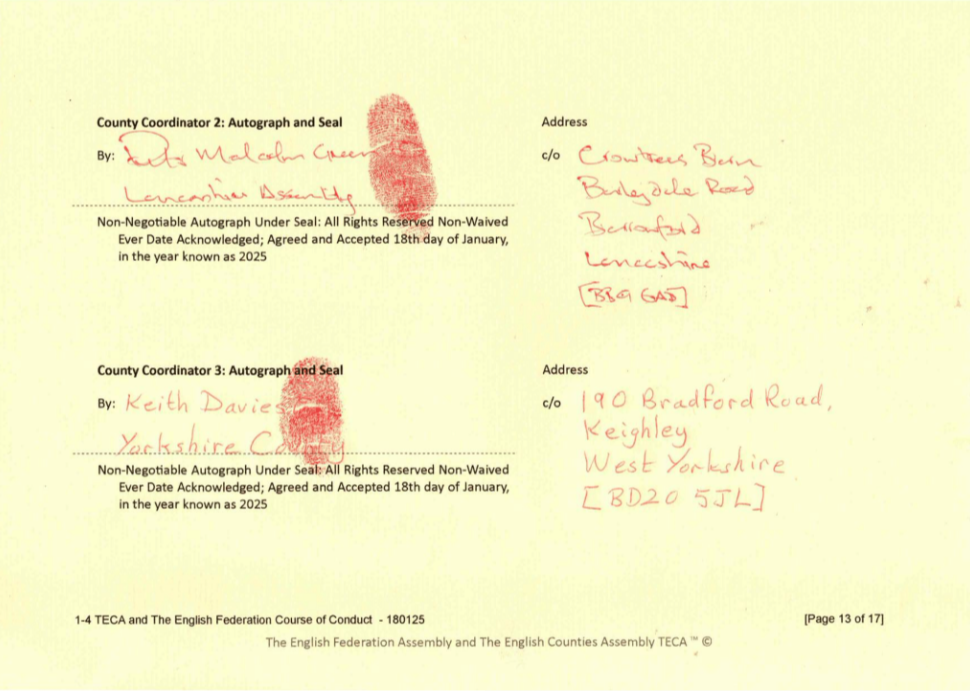 County Coordinator 2: Autograph and Seal
Address
By: Malcolm Green
c/o Crowtrees Barn
Lancashire Assembly
Road
Non-Negotiable Autograph Under Seal: All Rights Reserved Non-Waived
Ever Date Acknowledged; Agreed and Accepted 18th day of January,
in the year known as 2025
Barrowford
Lancashire
[BB9 6AD]
County Coordinator 3: Autograph and Seal
Address
By: Keith Davies
c/o 190 Bradford Road,
Keighley
Yorkshire County
West Yorkshire
Non-Negotiable Autograph Under Seal: All Rights Reserved Non-Waived
Ever Date Acknowledged; Agreed and Accepted 18th day of January,
in the year known as 2025
[BD20 5JL]
1-4 TECA and The English Federation Course of Conduct - 180125
[Page 13 of 17]
The English Federation Assembly and The English Counties Assembly TECA ™ ©